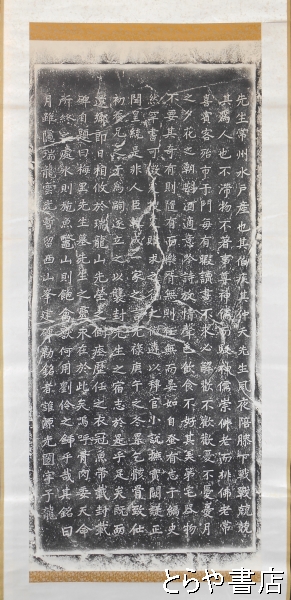 先生常州水戸産也其伯疾其仲夭先生夙夜陪膝下戰戰兢兢
其為人也不滞物不著事尊神儒而駁神儒崇佛老而排佛老常
喜賓客殆市于門毎有暇讀書不求必解歡不歡歡憂不憂憂月
之夕花之朝斟酒適意吟詩放情聲色飲食不好其美第宅器物
不要其奇有則随有而樂胥無則任無而晏如自蚤有志于編史
然罕書可徴爰捜爰購求之得之微遴以稗官小説摭實闕疑正
閏皇統是非人臣輯成一家之言元禄庚午之冬累乞骸骨致仕
初養兄之子為嗣遂立之以襲封先生之宿志於是乎足矣既而
還郷即日相攸於瑞龍山先塋之側瘞歴任之衣冠魚帶載封載
碑自題曰梅里先生墓先生之靈永在於此矣嗚呼骨肉委天命
所終之處水則施魚鼈山則飽禽獸何用劉伶之鍤乎哉其銘曰
月雖隠瑞龍雲光暫留西山峯建碑勒銘者誰源光圀字子龍
とらや書店